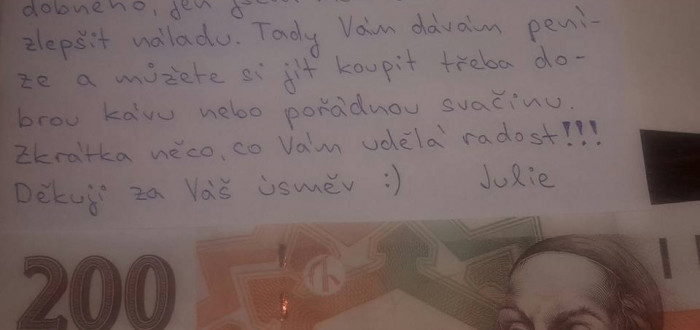 dobného, jen jsem
zlepšit náladu. Tady Vám dávám pení-
ze a můžete si jít koupit třeba do-
brou kávu nebo pořádnou svačinu.
Zkrátka něco, co Vám udělá radost!!!
Děkuji za Váš úsměv :) Julie
200